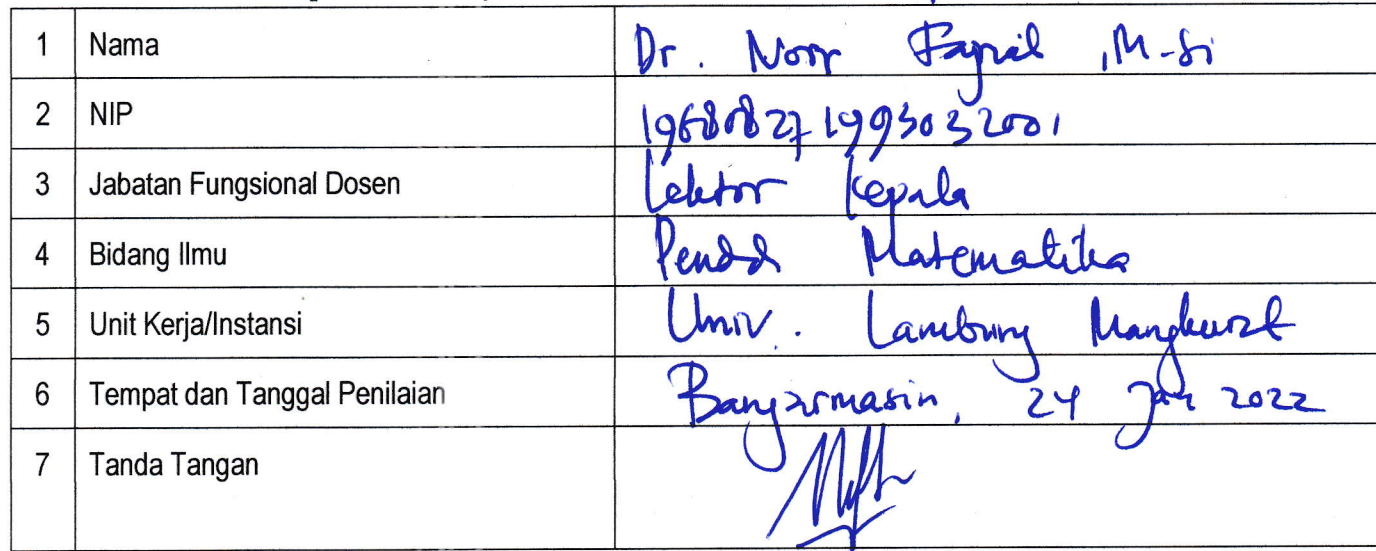 1 Nama Dr. Noor Fajriah, M.Si
2 NIP 196808271993032001
3 Jabatan Fungsional Dosen Lektor Kepala
4 Bidang Ilmu Pendd Matematika
5 Unit Kerja/Instansi Univ. Lambung Mangkurat
6 Tempat dan Tanggal Penilaian Banjarmasin, 24 Jan 2022
7 Tanda Tangan